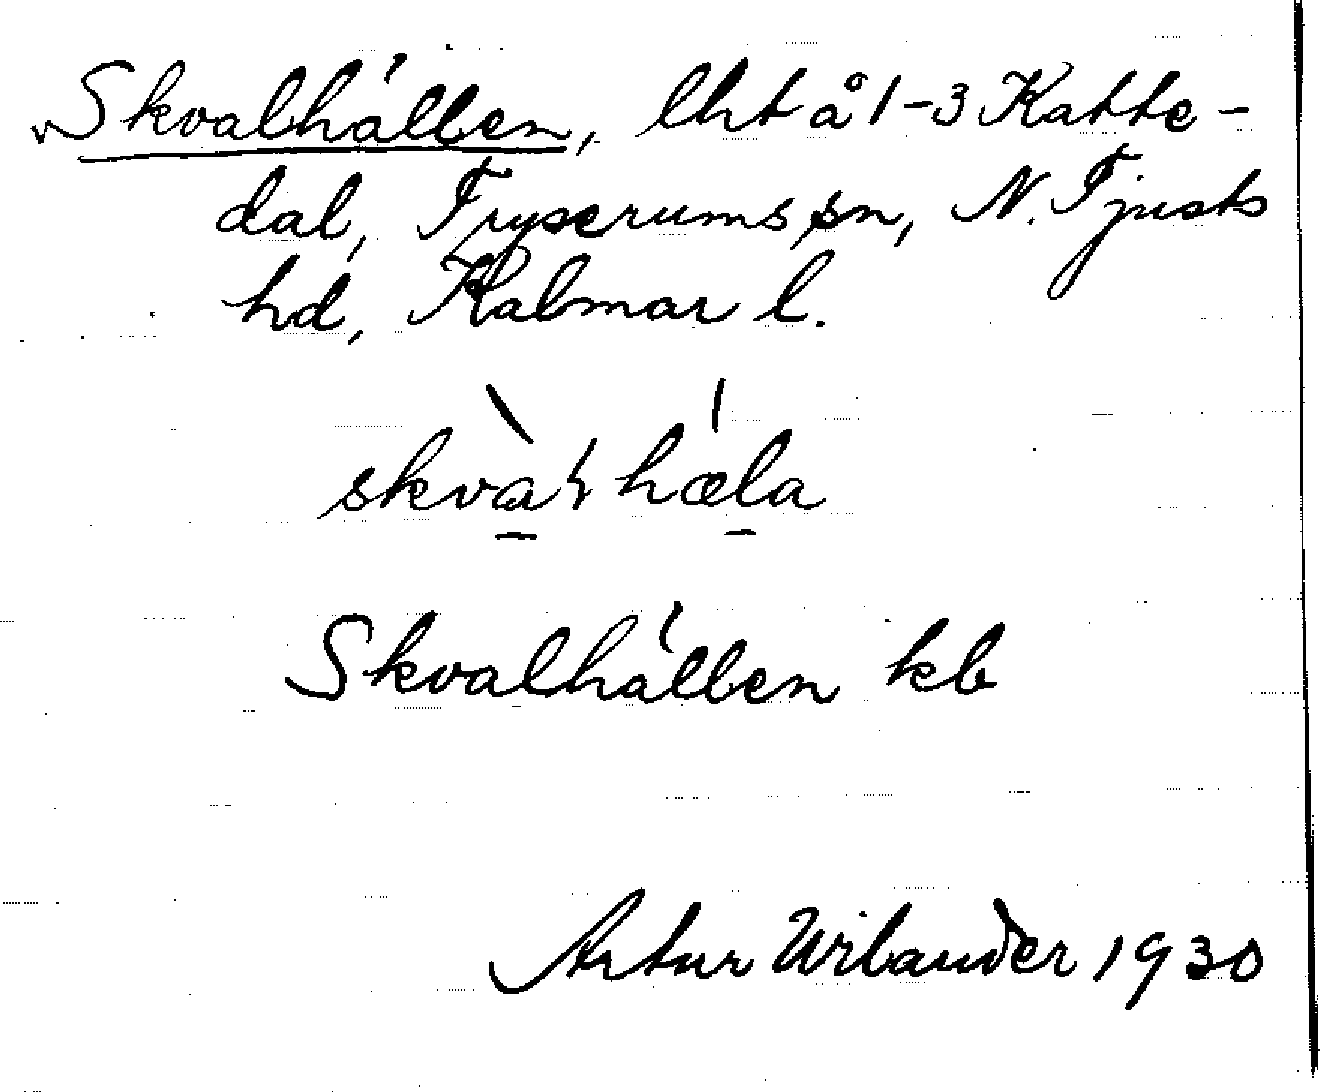 Skvalhällen, lht å 1-3 Katte-
dal, Tryserums sn, N. Tjusts
hd, Kalmar l.
skvàɬhæ̍la
Skvalhällen kb
Artur Wilander 1930